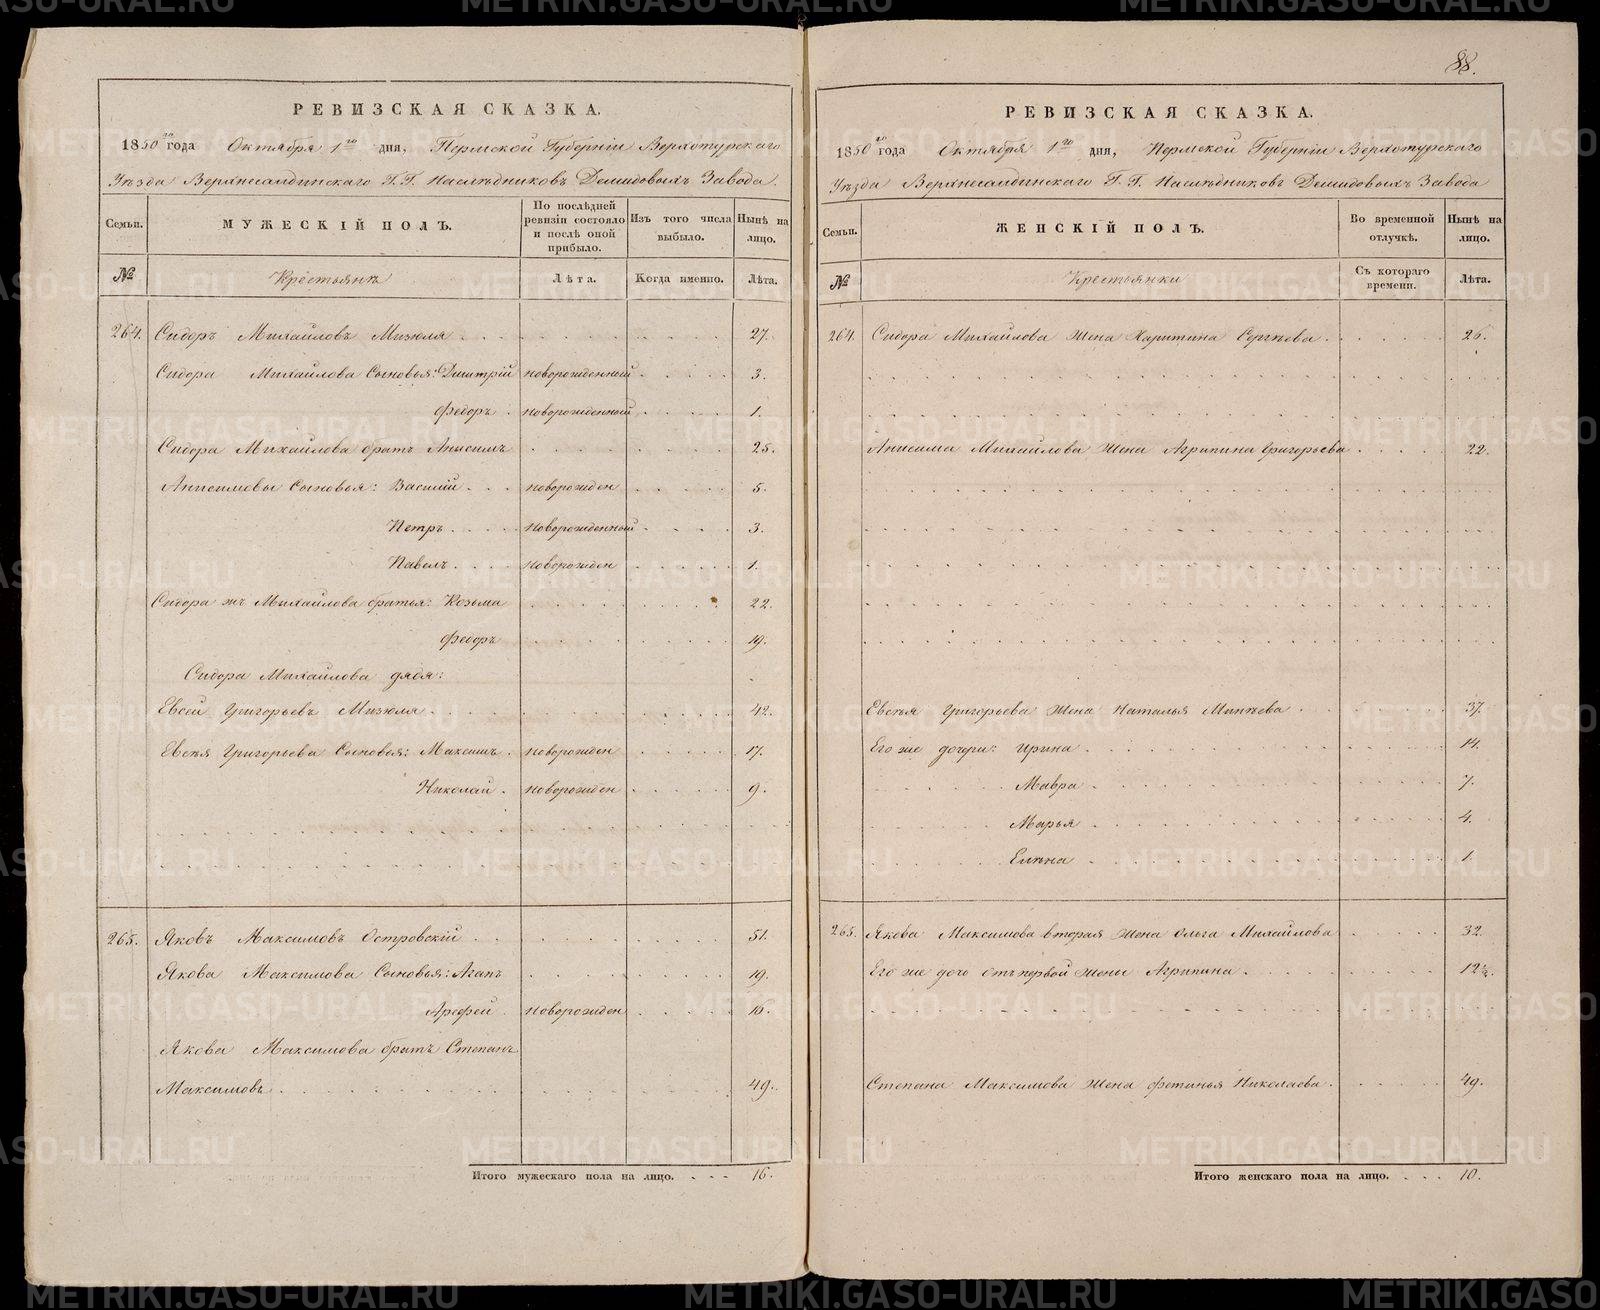 88.
РЕВИЗСКАЯ СКАЗКА.
1850го года Октября 1го дня, Пермской Губерніи Верхотурскаго
Уѣзда Верхнесалдинскаго Г.Г. Наслѣдниковъ Демидовыхъ Завода.
Семьи. МУЖЕСКІЙ ПОЛЪ. По послѣдней ревизіи состояло и послѣ оной прибыло. Изъ того числа выбыло. Нынѣ на лицо.
№ Крестьянъ Лѣта. Когда именно. Лѣта.
264. Сидоръ Михайловъ Мизюля 27.
Сидора Михайлова Сыновья: Дмитрій новорожденный 3.
Федоръ новорожденный 1.
Сидора Михайлова братъ Анисимъ 25.
Анисимовы Сыновья: Василій новорожден 5.
Петръ новорожденный 3.
Павелъ новорожден 1.
Сидора жъ Михайлова братья: Козьма 22.
Федоръ 19.
Сидора Михайлова дядя:
Евсей Григорьевъ Мизюля 42.
Евсѣя Григорьева Сыновья: Максимъ новорожден 17.
Николай новорожден 9.
265. Яковъ Максимовъ Островскій 51.
Якова Максимова Сыновья: Агапъ 19.
Арефей новорожден 16.
Якова Максимова братъ Степанъ
Максимовъ 49.
Итого мужескаго пола на лицо. 16.
РЕВИЗСКАЯ СКАЗКА.
1850го года Октября 1го дня, Пермской Губерніи Верхотурскаго
Уѣзда Верхнесалдинскаго Г.Г. Наслѣдниковъ Демидовыхъ Завода
Семьи. ЖЕНСКІЙ ПОЛЪ. Во временной отлучкѣ. Нынѣ на лицо.
№ Крестьянки Съ котораго времени. Лѣта.
264. Сидора Михайлова жена Харитина Сергѣева 26.
Анисима Михайлова жена Агрипина Григорьева 22.
Евсѣя Григорьева жена Наталья Минѣева 37.
Его же дочери: Ирина 14.
Мавра 7.
Марья 4.
Елѣна 1.
265. Якова Максимова вторая жена Ольга Михайлова 32.
Его же дочь отъ первой жены Агрипина 12½.
Степана Максимова жена Фетинья Николаева 49.
Итого женскаго пола на лицо. 10.
METRIKI.GASO-URAL.RU